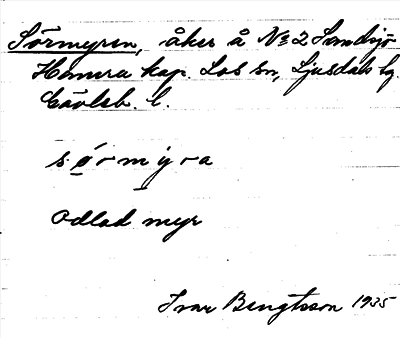 Sörmyren, åker å No 2 Sundsjö
Hamra kap. Los sn, Ljusdals tg
Gävleb. l.
sørmyra
Odlad myr
Ivar Bengtsson 1935